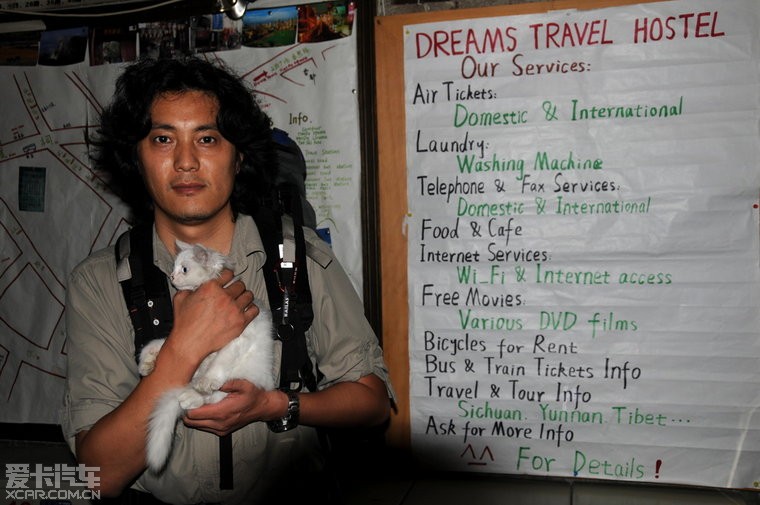 DREAMS TRAVEL HOSTEL
Our Services:
Air Tickets:
Domestic & International
Laundry:
Washing Machine
Telephone & Fax Services:
Domestic & International
Food & Cafe
Internet Services:
Wi_Fi & Internet access
Free Movies:
Various DVD films
Bicycles for Rent
Bus & Train Tickets Info
Travel & Tour Info
Sichuan. Yunnan Tibet...
Ask for More Info
^^ For Details!
Info.
爱卡汽车
XCAR.COM.CN